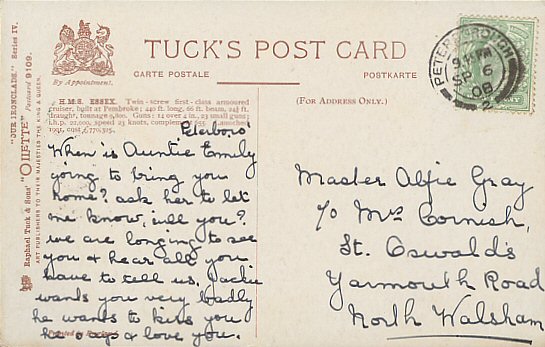 TUCK'S POST CARD
CARTE POSTALE
POSTKARTE
By Appointment.
(FOR ADDRESS ONLY.)
H.M.S. ESSEX. Twin-screw first-class armoured
cruiser, built at Pembroke; 440 ft. long, 66 ft. beam, 24½ ft.
draught, tonnage 9,800. Guns: 14 over 4 in., 23 small guns;
I.h.p. 22,000, speed 23 knots, complement 655. Launched
1901, cost £770,325.
Peterboro'
When is Auntie Emily
going to bring you
home? ask her to let
me know, will you?
we are longing to see
you & hear all you
have to tell us. Jackie
wants you very badly
he wants to kiss you
he says & love you.
Master Alfie Gray
c/o Mrs Cornish,
St. Oswald's
Yarmouth Road
North Walsham
PETERBOROUGH
SP 6
08
2
"OUR IRONCLADS." Series IV.
Raphael Tuck & Sons' "OILETTE" Postcard 9109.
ART PUBLISHERS TO THEIR MAJESTIES THE KING & QUEEN.